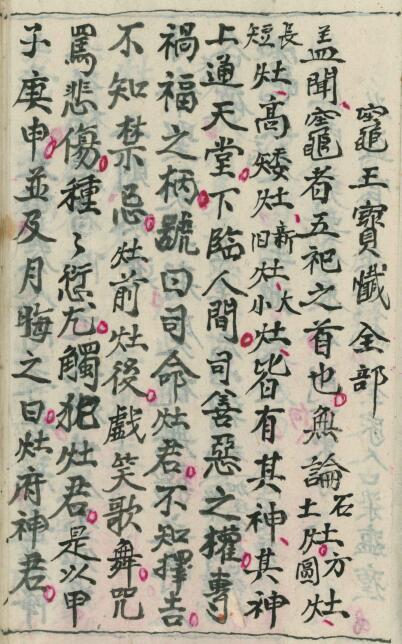 竈王寶懺全部
盖聞竈者五祀之首也無論石土灶方圓灶
長短灶高矮灶新旧灶大小灶皆有其神其神
上通天堂下臨人間司善惡之權專
禍福之柄號曰司命灶君不知擇吉
不知禁忌灶前灶後戲笑歌舞咒
罵悲傷種々愆尤觸犯灶君是以甲
子庚申並及月晦之日灶府神君